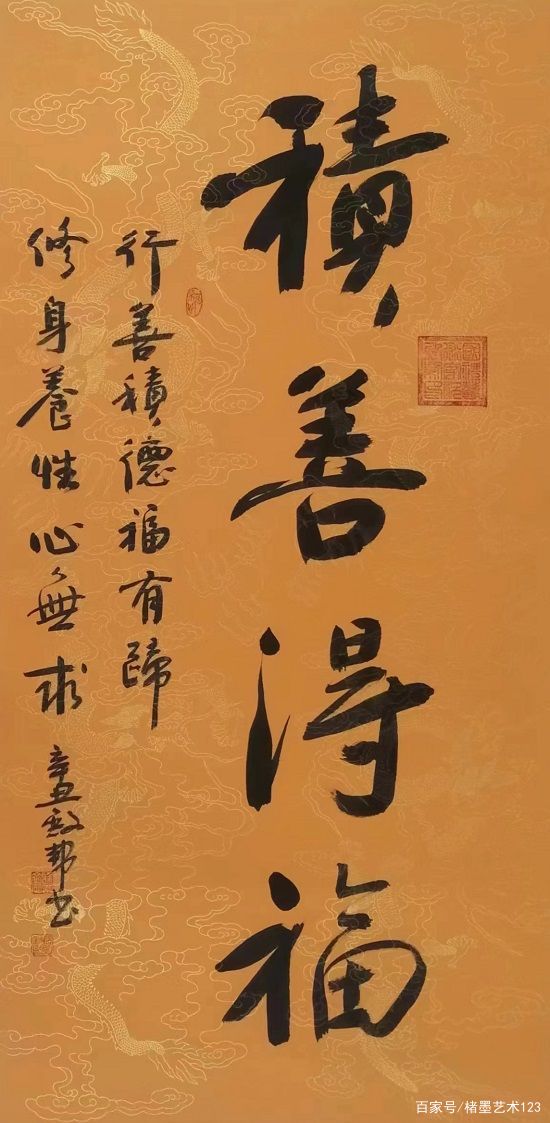 積善得福
行善積德福有歸
修身養性心無求
辛丑 邦书
百家号/楮墨艺术123